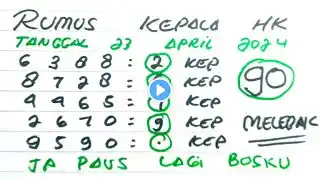 RUMUS KEPALA HK
TANGGAL 23 APRIL 2024
6 3 8 8 = 2 KEP
8 7 2 8 = KEP
6 5 = KEP
90
2 6 7 0 = 9 KEP
MELEDAK
9 5 9 0 = . KEP
JP PAUS LAGI BOSKU